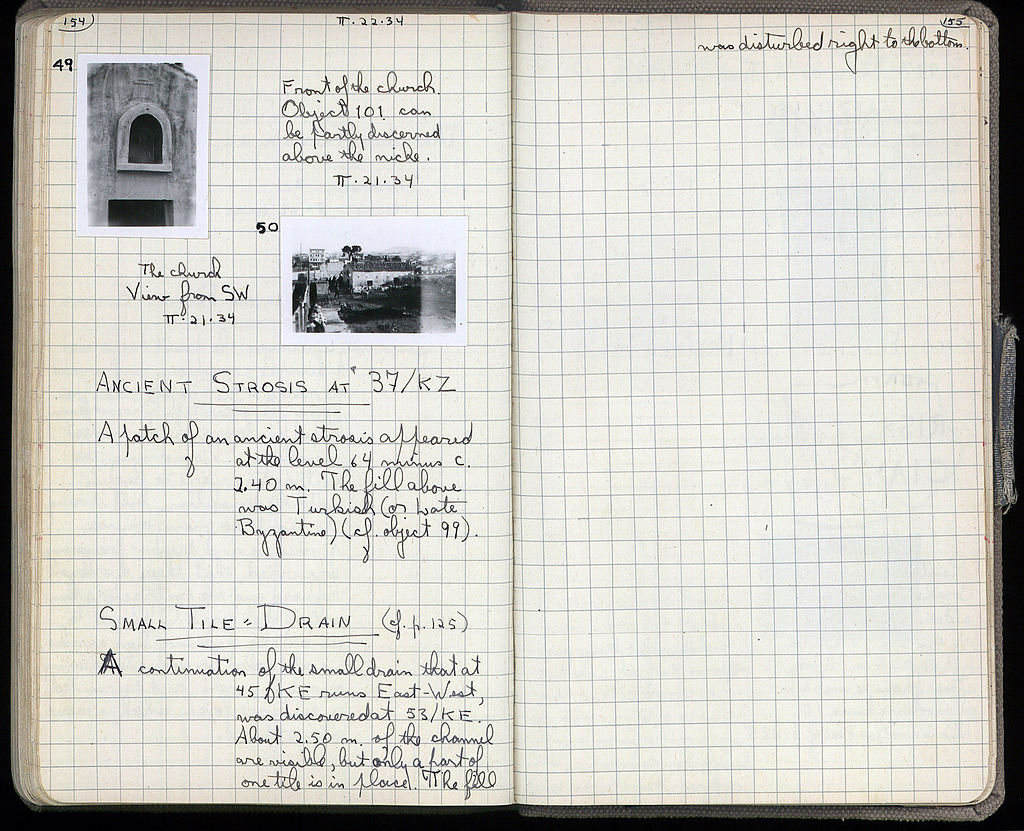 154)
II.22.34
49
Front of the church.
Object 101 can
be partly discerned
above the niche.
II.21.34
50
The church
View from SW
II.21.34
ANCIENT STROSIS AT 37/KZ
A patch of an ancient strosis appeared
at the level 64 minus c.
2.40 m. The fill above
was Turkish (or Late
Byzantine) (cf. object 99).
SMALL TILE=DRAIN (cf. p. 125)
A continuation of the small drain that at
45/KE runs East-West,
was discovered at 53/KE.
About 2.50 m. of the channel
are visible, but only a part of
one tile is in place. The fill
155
was disturbed right to the bottom.